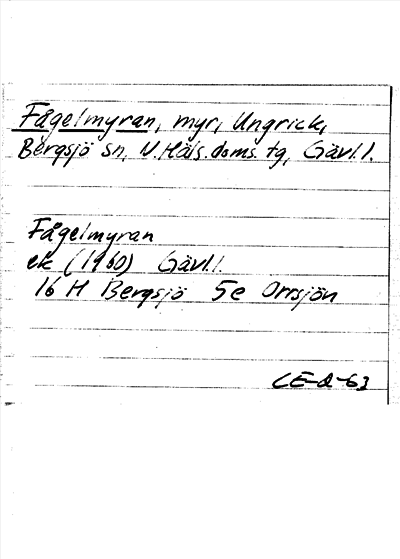 Fågelmyran, myr, Ungrick,
Bergsjö sn, N.Häls.doms.tg, Gävl.l.
Fågelmyran
ek (1960) Gävl.l.
16 H Bergsjö 5e Orrsjön